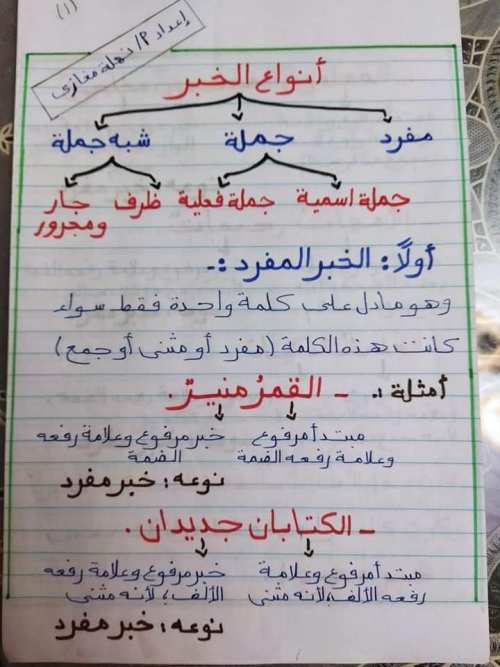 (١)
إعداد P/ نهلة مغازى
أنواع الخبر
مفرد جملة شبه جملة
جملة اسمية جملة فعلية ظرف جار
ومجرور
أولاً: الخبر المفرد :-
وهو مادل على كلمة واحدة فقط سواء
كانت هذه الكلمة (مفرد أو مثنى أو جمع)
أمثلة :- - القمرُ منيرٌ.
مبتدأ مرفوع خبر مرفوع وعلامة رفعه
وعلامة رفعه الضمة الضمة
نوعه : خبر مفرد
- الكتابان جديدان .
مبتدأ مرفوع وعلامة خبر مرفوع وعلامة رفعه
رفعه الألف لأنه مثنى الألف ؛ لأنه مثنى
نوعه : خبر مفرد